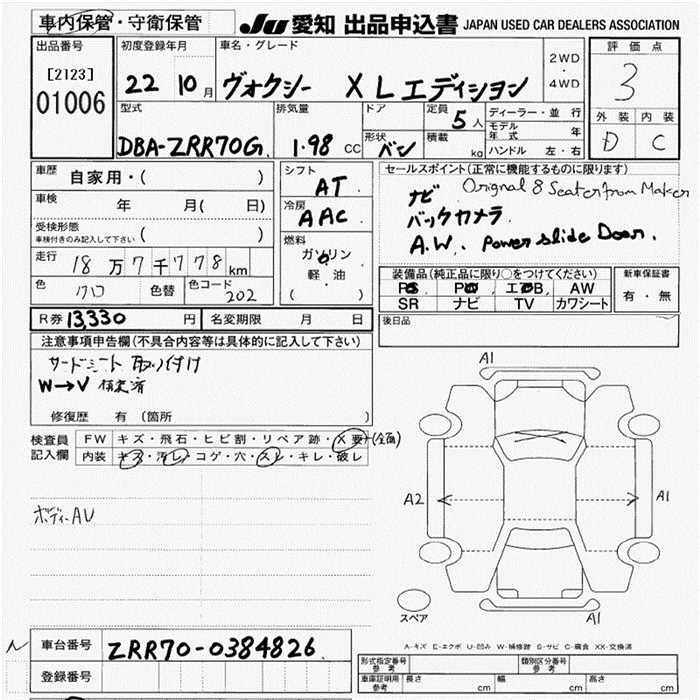 車内保管・守衛保管 JU 愛知 出品申込書 JAPAN USED CAR DEALERS ASSOCIATION
出品番号 初度登録年月 車名・グレード 2WD・4WD 評価点
[2123] 22 10月 ヴォクシー X Lエディション 3
01006
型式 排気量 ドア 定員 5人 ディーラー・並行 外装 内装
モデル年式 年
DBA-ZRR70G 1.98 CC 形状 バン 積載 kg ハンドル 左・右 D C
車歴 自家用・( ) シフト AT セールスポイント(正常に機能するものに限ります)
車検 年 月( 日) 冷房 AAC ナビ Original 8 Seater from Maker
バックカメラ
受検形態 ( )
車検付きのみ記入して下さい
燃料 ガソリン A.W. Power slide Door.
走行 18万7千778km 軽・油
装備品(純正品に限り○をつけてください) 新車保証書
色 色替 色コード 202 ( ) PS PW エアB AW 有・無
SR ナビ TV カワシート
R券 13,330円 名変期限 月 日 後日品
注意事項申告欄(不具合内容等は具体的に記入して下さい)
サードシート取り付け
W→V
修復歴 有 (箇所 )
検査員記入欄 FW キズ・飛石・ヒビ割・リペア跡・X要 (全面)
内装 キズ・汚レ・コゲ・穴・スレ・キレ・破レ
A1
A2 A1
ボディーAU
スペア
A1
A-キズ E-エクボ U-凹み W-補修跡 S-サビ C-腐食 XX-交換済
車台番号 ZRR70-0384826
登録番号
型式指定番号 参考 類別区分番号 参考
車庫証明用 参考 長さ cm 幅 cm 高さ cm